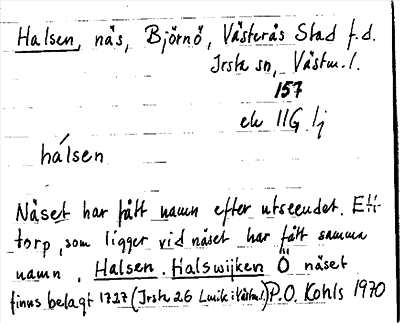 Halsen, näs, Björnö, Västerås Stad f.d.
Irsta sn, Västm. l.
157
ek 11G lj
hálsen
Näset har fått namn efter utseendet. Ett
torp, som ligger vid näset har fått samma
namn. Halsen. Halswijken Ö näset
finns belagt 1727 (Irsta 26 Lmk: i Västm.l.) P.O. Kohls 1970